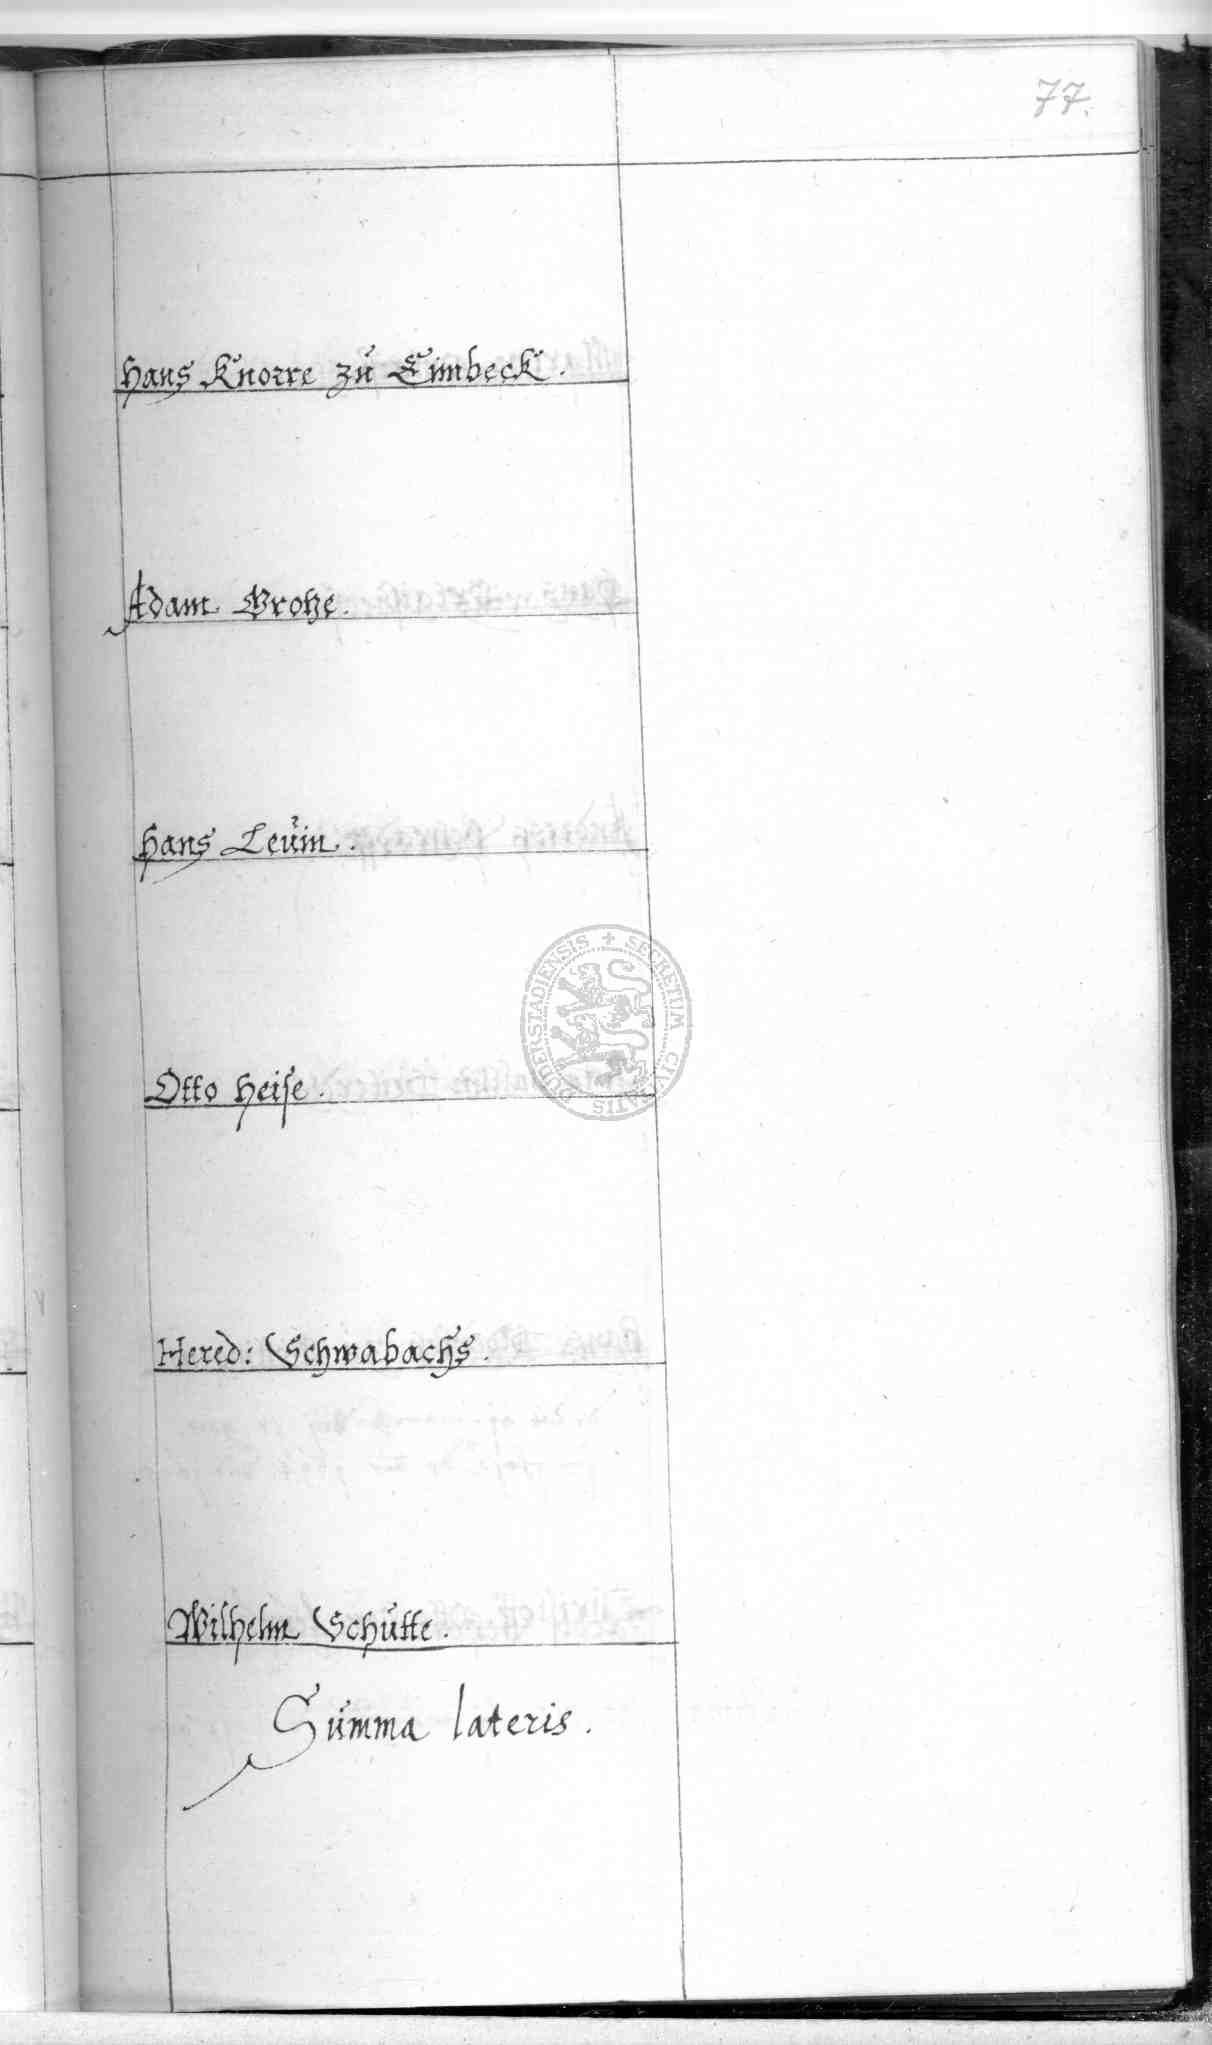 77.
Hans Knorre zu Eimbeck.
Adam Grohe.
Hans Leuin.
Otto Heise.
Hered: Schwabachs.
Wilhelm Schutte.
Summa lateris.
SECRETUM CIVITATIS DUDERSTADIENSIS +